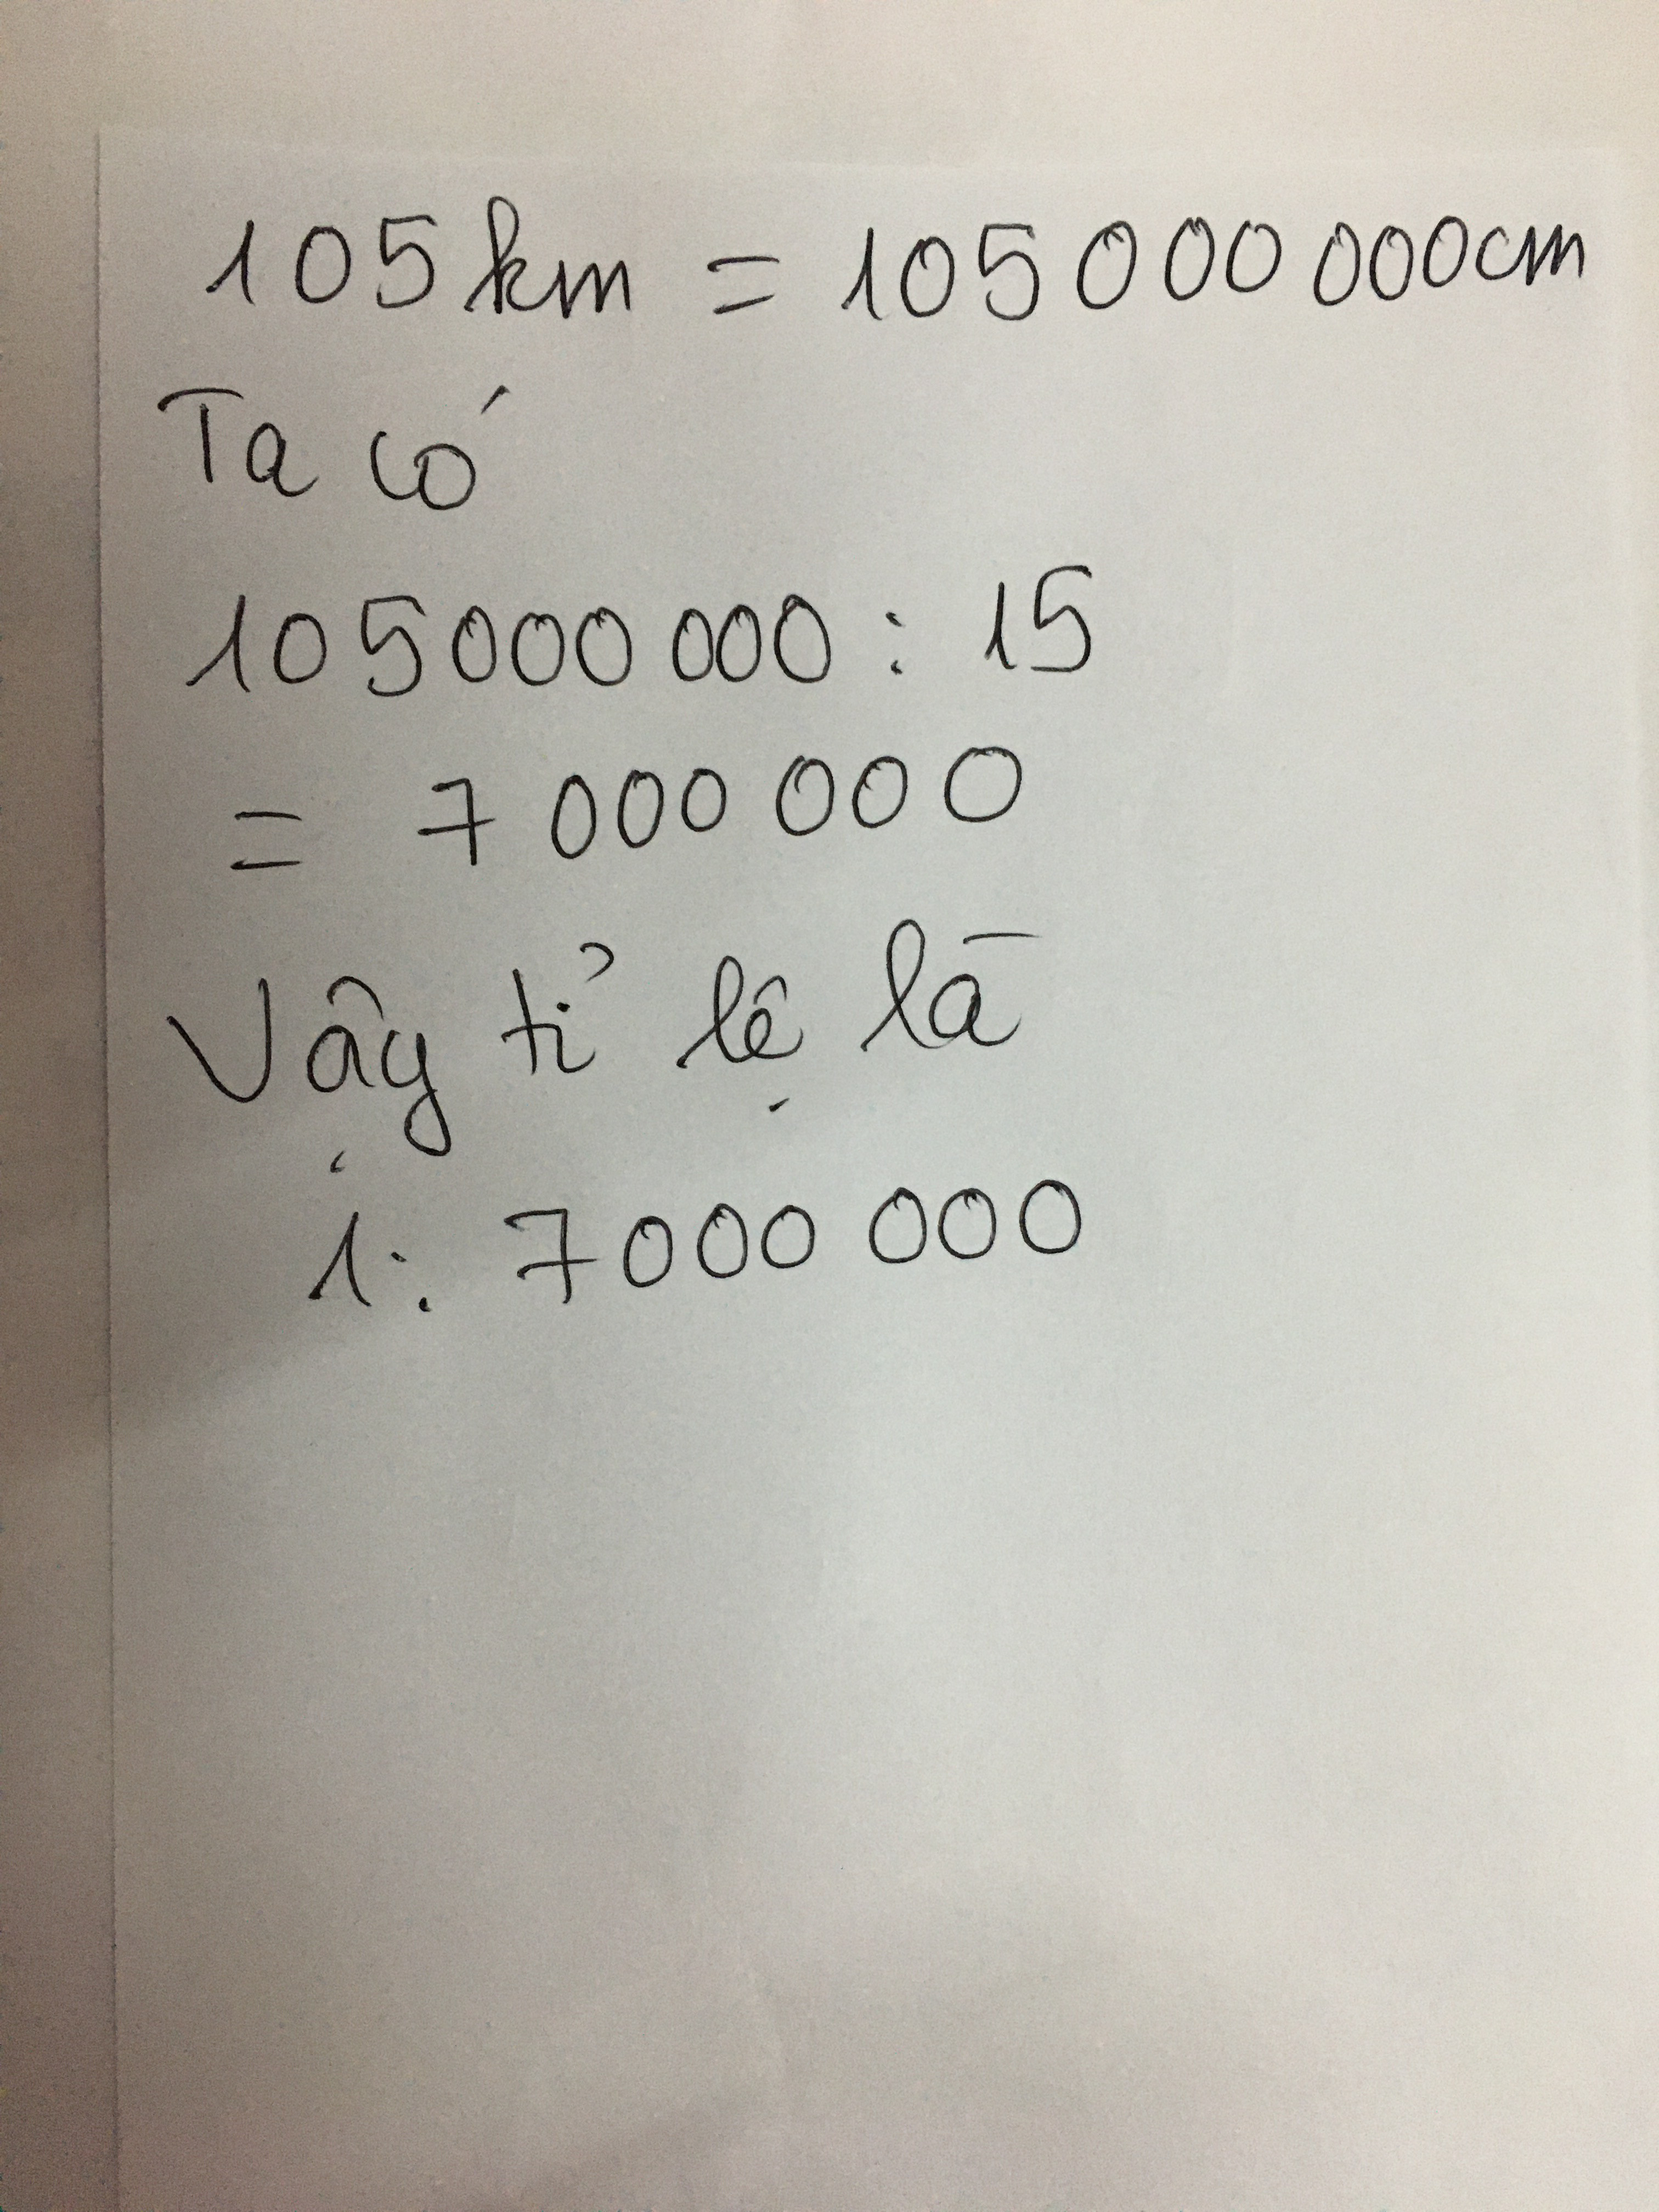 105 km = 105 000 000cm
Ta có
105 000 000 : 15
= 7 000 000
Vậy tỉ lệ là
1: 7 000 000